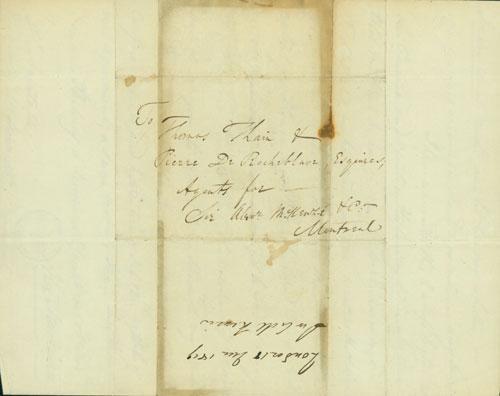 To
Thomas Thain &
Pierre De Rocheblave, Esquires,
Agents for
Sir Alexr McKenzie & Co
Montreal
London 18 Jan 1809